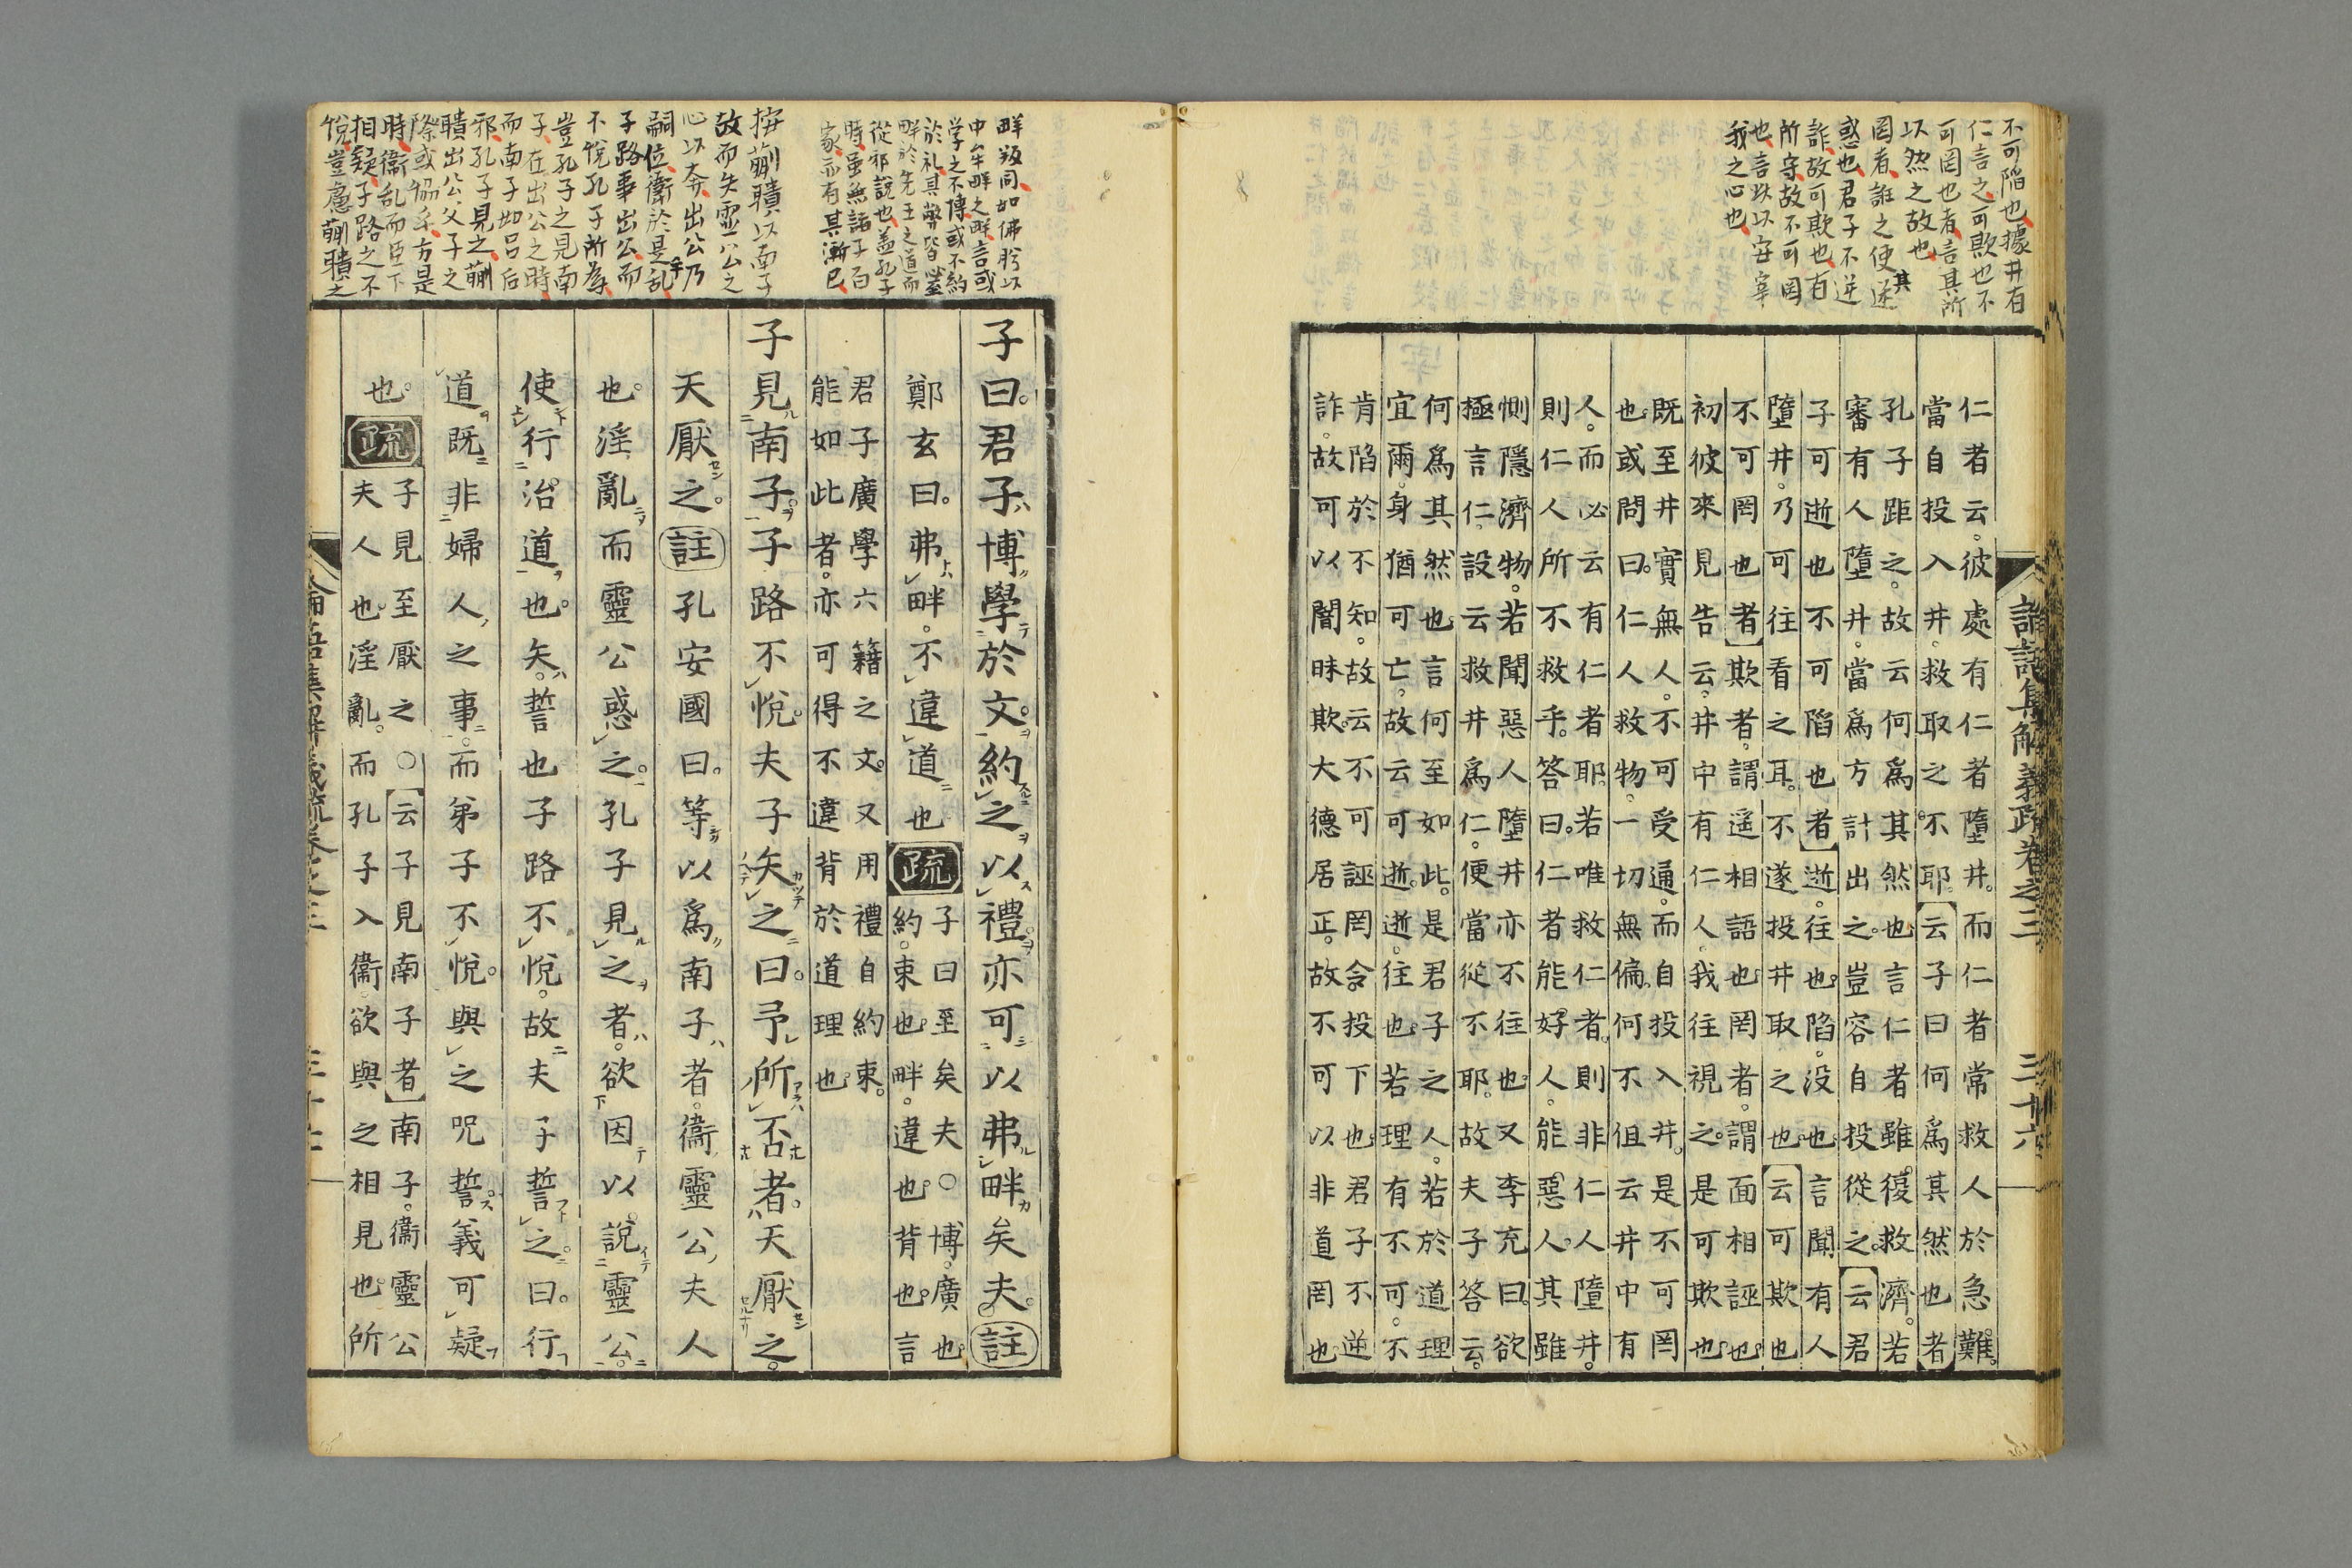 不可陷也據井有
仁言之可欺也不
可罔也者言其所
以然之故也
罔者誑之使迷
其
惑也君子不逆
詐故可欺也有
所守故不可罔
也言以以安宰
我之心也
論語集解義疏卷之三
三十六
仁者云彼處有仁者墮井而仁者常救人於急難
當自投入井救取之不耶云子曰何爲其然也者
孔子距之故云何爲其然也言仁者雖復救濟若
審有人墮井當爲方計出之豈容自投從之云君
子可逝也不可陷也者逝往也陷没也言聞有人
墮井乃可往看之耳不遂投井取之也云可欺也
不可罔也者欺者謂遥相語也罔者謂面相誣也
初彼來見告云井中有仁人我往視之是可欺也
既至井實無人不可受通而自投入井是不可罔
也或問曰仁人救物一切無偏何不但云井中有
人而必云有仁者耶若唯救仁者則非仁人墮井
則仁人所不救乎答曰仁者能好人能惡人其雖
惻隱濟物若聞惡人墮井亦不往也又李充曰欲
極言仁設云救井爲仁便當從不耶故夫子答云
何爲其然也言何至如此是君子之人若於道理
宜爾身猶可亡故云可逝逝往也若理有不可不
肯陷於不知故云不可誣罔令投下也君子不逆
詐故可以闇昧欺大德居正故不可以非道罔也
畔叛同如佛肸以
中牟畔之畔言或
学之不博或不約
於礼其弊皆必
畔於先王之道而
從邪說也蓋孔子
時虽無諸子百
家而有其漸已
按蒯聵以南子
故而失霊公之
心以奔出公乃
嗣位衛於是乱
子路事出公而
不悅孔子所為
豈孔子之見南
子在出公之時
而南子如呂后
邪孔子見之蒯
聵出公父子之
際或
時衛乱而臣下
相疑子路之不
悅豈慮蒯聵之
子曰君子博學於文約之以禮亦可以弗畔矣夫註
鄭玄曰弗畔不違道也疏子曰至矣夫○博廣也
約束也畔違也背也言
君子廣學六籍之文又用禮自約束
能如此者亦可得不違背於道理也
子見南子子路不悅夫子矢之曰予所否者天厭之
天厭之註孔安國曰等以爲南子者衞靈公夫人
也淫亂而靈公惑之孔子見之者欲因以說靈公
使行治道也矢誓也子路不悅故夫子誓之曰行
道既非婦人之事而弟子不悅與之呪誓義可疑
也疏子見至厭之○云子見南子者南子衞靈公
夫人也淫亂而孔子入衞欲與之相見也所